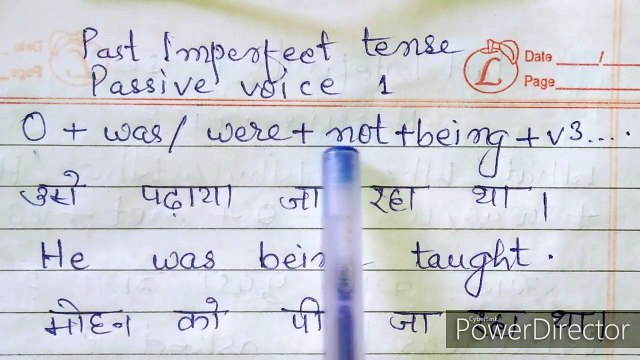 Past Imperfect tense
Passive voice 1
Date ___/
Page
O + was/ were + not + being + v3....
उसे पढ़ाया जा रहा था।
He was being taught.
मोहन को जा था।
CyberLink
PowerDirector